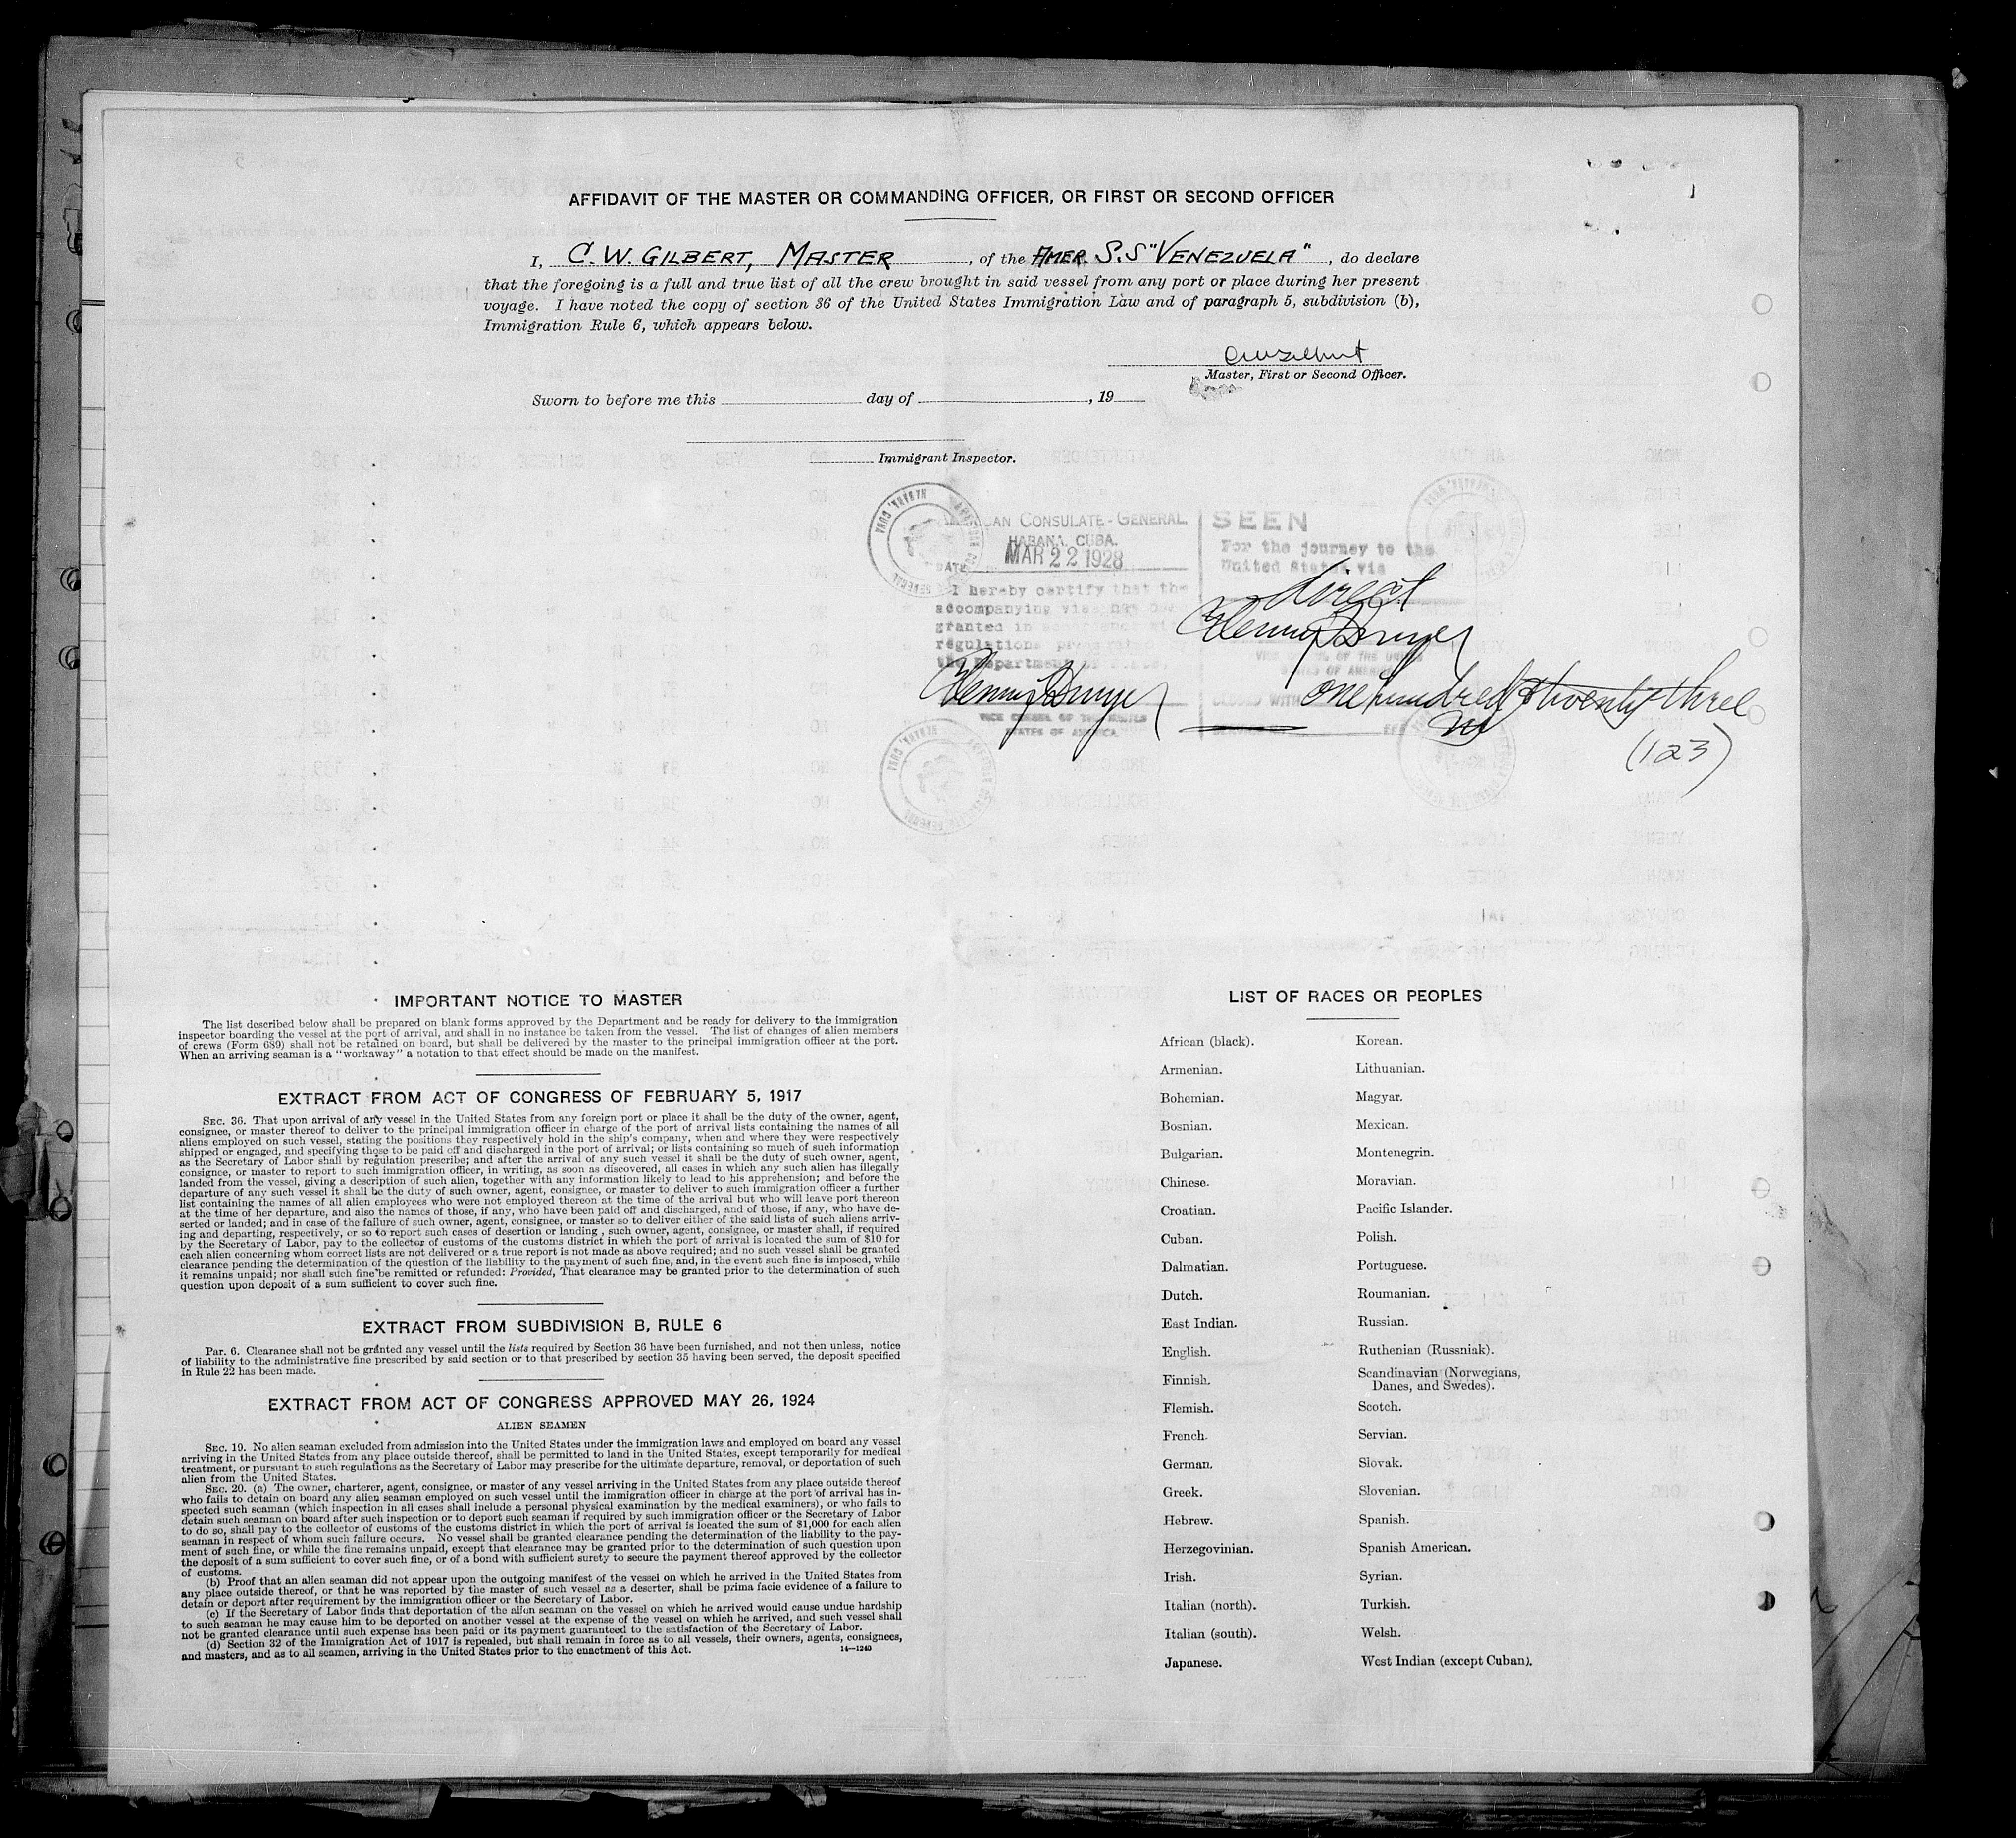 AFFIDAVIT OF THE MASTER OR COMMANDING OFFICER, OR FIRST OR SECOND OFFICER
I, C. W. GILBERT, MASTER, of the AMER. S.S "VENEZUELA", do declare
that the foregoing is a full and true list of all the crew brought in said vessel from any port or place during her present
voyage. I have noted the copy of section 36 of the United States Immigration Law and of paragraph 5, subdivision (b),
Immigration Rule 6, which appears below.
CW Gilbert
Master, First or Second Officer.
Sworn to before me this day of , 19
Immigrant Inspector.
CAN CONSULATE-GENERAL
HABANA, CUBA.
DATE MAR 22 1928
I hereby certify that the
accompanying visa has
granted in
regulations
the Department of State.
VICE CONSUL OF THE UNITED
STATES OF AMERICA
SEEN
For the journey to the
United States via
direct
VICE CONSUL OF THE UNITED
STATES OF AMERICA
one hundred & twenty three
(123)
IMPORTANT NOTICE TO MASTER
The list described below shall be prepared on blank forms approved by the Department and be ready for delivery to the immigration
inspector boarding the vessel at the port of arrival, and shall in no instance be taken from the vessel. The list of changes of alien members
of crews (Form 689) shall not be retained on board, but shall be delivered by the master to the principal immigration officer at the port.
When an arriving seaman is a "workaway" a notation to that effect should be made on the manifest.
EXTRACT FROM ACT OF CONGRESS OF FEBRUARY 5, 1917
SEC. 36. That upon arrival of any vessel in the United States from any foreign port or place it shall be the duty of the owner, agent,
consignee, or master thereof to deliver to the principal immigration officer in charge of the port of arrival lists containing the names of all
aliens employed on such vessel, stating the positions they respectively hold in the ship's company, when and where they were respectively
shipped or engaged, and specifying those to be paid off and discharged in the port of arrival; or lists containing so much of such information
as the Secretary of Labor shall by regulation prescribe; and after the arrival of any such vessel it shall be the duty of such owner, agent,
consignee, or master to report to such immigration officer, in writing, as soon as discovered, all cases in which any such alien has illegally
landed from the vessel, giving a description of such alien, together with any information likely to lead to his apprehension; and before the
departure of any such vessel it shall be the duty of such owner, agent, consignee, or master to deliver to such immigration officer a further
list containing the names of all alien employees who were not employed thereon at the time of the arrival but who will leave port thereon
at the time of her departure, and also the names of those, if any, who have been paid off and discharged, and of those, if any, who have de-
serted or landed; and in case of the failure of such owner, agent, consignee, or master so to deliver either of the said lists of such aliens arriv-
ing and departing, respectively, or so to report such cases of desertion or landing , such owner, agent, consignee, or master shall, if required
by the Secretary of Labor, pay to the collector of customs of the customs district in which the port of arrival is located the sum of $10 for
each alien concerning whom correct lists are not delivered or a true report is not made as above required; and no such vessel shall be granted
clearance pending the determination of the question of the liability to the payment of such fine, and, in the event such fine is imposed, while
it remains unpaid; nor shall such fine be remitted or refunded: Provided, That clearance may be granted prior to the determination of such
question upon deposit of a sum sufficient to cover such fine.
EXTRACT FROM SUBDIVISION B, RULE 6
Par. 6. Clearance shall not be granted any vessel until the lists required by Section 36 have been furnished, and not then unless, notice
of liability to the administrative fine prescribed by said section or to that prescribed by section 35 having been served, the deposit specified
in Rule 22 has been made.
EXTRACT FROM ACT OF CONGRESS APPROVED MAY 26, 1924
ALIEN SEAMEN
SEC. 19. No alien seaman excluded from admission into the United States under the immigration laws and employed on board any vessel
arriving in the United States from any place outside thereof, shall be permitted to land in the United States, except temporarily for medical
treatment, or pursuant to such regulations as the Secretary of Labor may prescribe for the ultimate departure, removal, or deportation of such
alien from the United States.
SEC. 20. (a) The owner, charterer, agent, consignee, or master of any vessel arriving in the United States from any place outside thereof
who fails to detain on board any alien seaman employed on such vessel until the immigration officer in charge at the port of arrival has in-
spected such seaman (which inspection in all cases shall include a personal physical examination by the medical examiners), or who fails to
detain such seaman on board after such inspection or to deport such seaman if required by such immigration officer or the Secretary of Labor
to do so, shall pay to the collector of customs of the customs district in which the port of arrival is located the sum of $1,000 for each alien
seaman in respect of whom such failure occurs. No vessel shall be granted clearance pending the determination of the liability to the pay-
ment of such fine, or while the fine remains unpaid, except that clearance may be granted prior to the determination of such question upon
the deposit of a sum sufficient to cover such fine, or of a bond with sufficient surety to secure the payment thereof approved by the collector
of customs.
(b) Proof that an alien seaman did not appear upon the outgoing manifest of the vessel on which he arrived in the United States from
any place outside thereof, or that he was reported by the master of such vessel as a deserter, shall be prima facie evidence of a failure to
detain or deport after requirement by the immigration officer or the Secretary of Labor.
(c) If the Secretary of Labor finds that deportation of the alien seaman on the vessel on which he arrived would cause undue hardship
to such seaman he may cause him to be deported on another vessel at the expense of the vessel on which he arrived, and such vessel shall
not be granted clearance until such expense has been paid or its payment guaranteed to the satisfaction of the Secretary of Labor.
(d) Section 32 of the Immigration Act of 1917 is repealed, but shall remain in force as to all vessels, their owners, agents, consignees,
and masters, and as to all seamen, arriving in the United States prior to the enactment of this Act.
14—1240
LIST OF RACES OR PEOPLES
African (black).
Armenian.
Bohemian.
Bosnian.
Bulgarian.
Chinese.
Croatian.
Cuban.
Dalmatian.
Dutch.
East Indian.
English.
Finnish.
Flemish.
French.
German.
Greek.
Hebrew.
Herzegovinian.
Irish.
Italian (north).
Italian (south).
Japanese.
Korean.
Lithuanian.
Magyar.
Mexican.
Montenegrin.
Moravian.
Pacific Islander.
Polish.
Portuguese.
Roumanian.
Russian.
Ruthenian (Russniak).
Scandinavian (Norwegians,
Danes, and Swedes).
Scotch.
Servian.
Slovak.
Slovenian.
Spanish.
Spanish American.
Syrian.
Turkish.
Welsh.
West Indian (except Cuban).